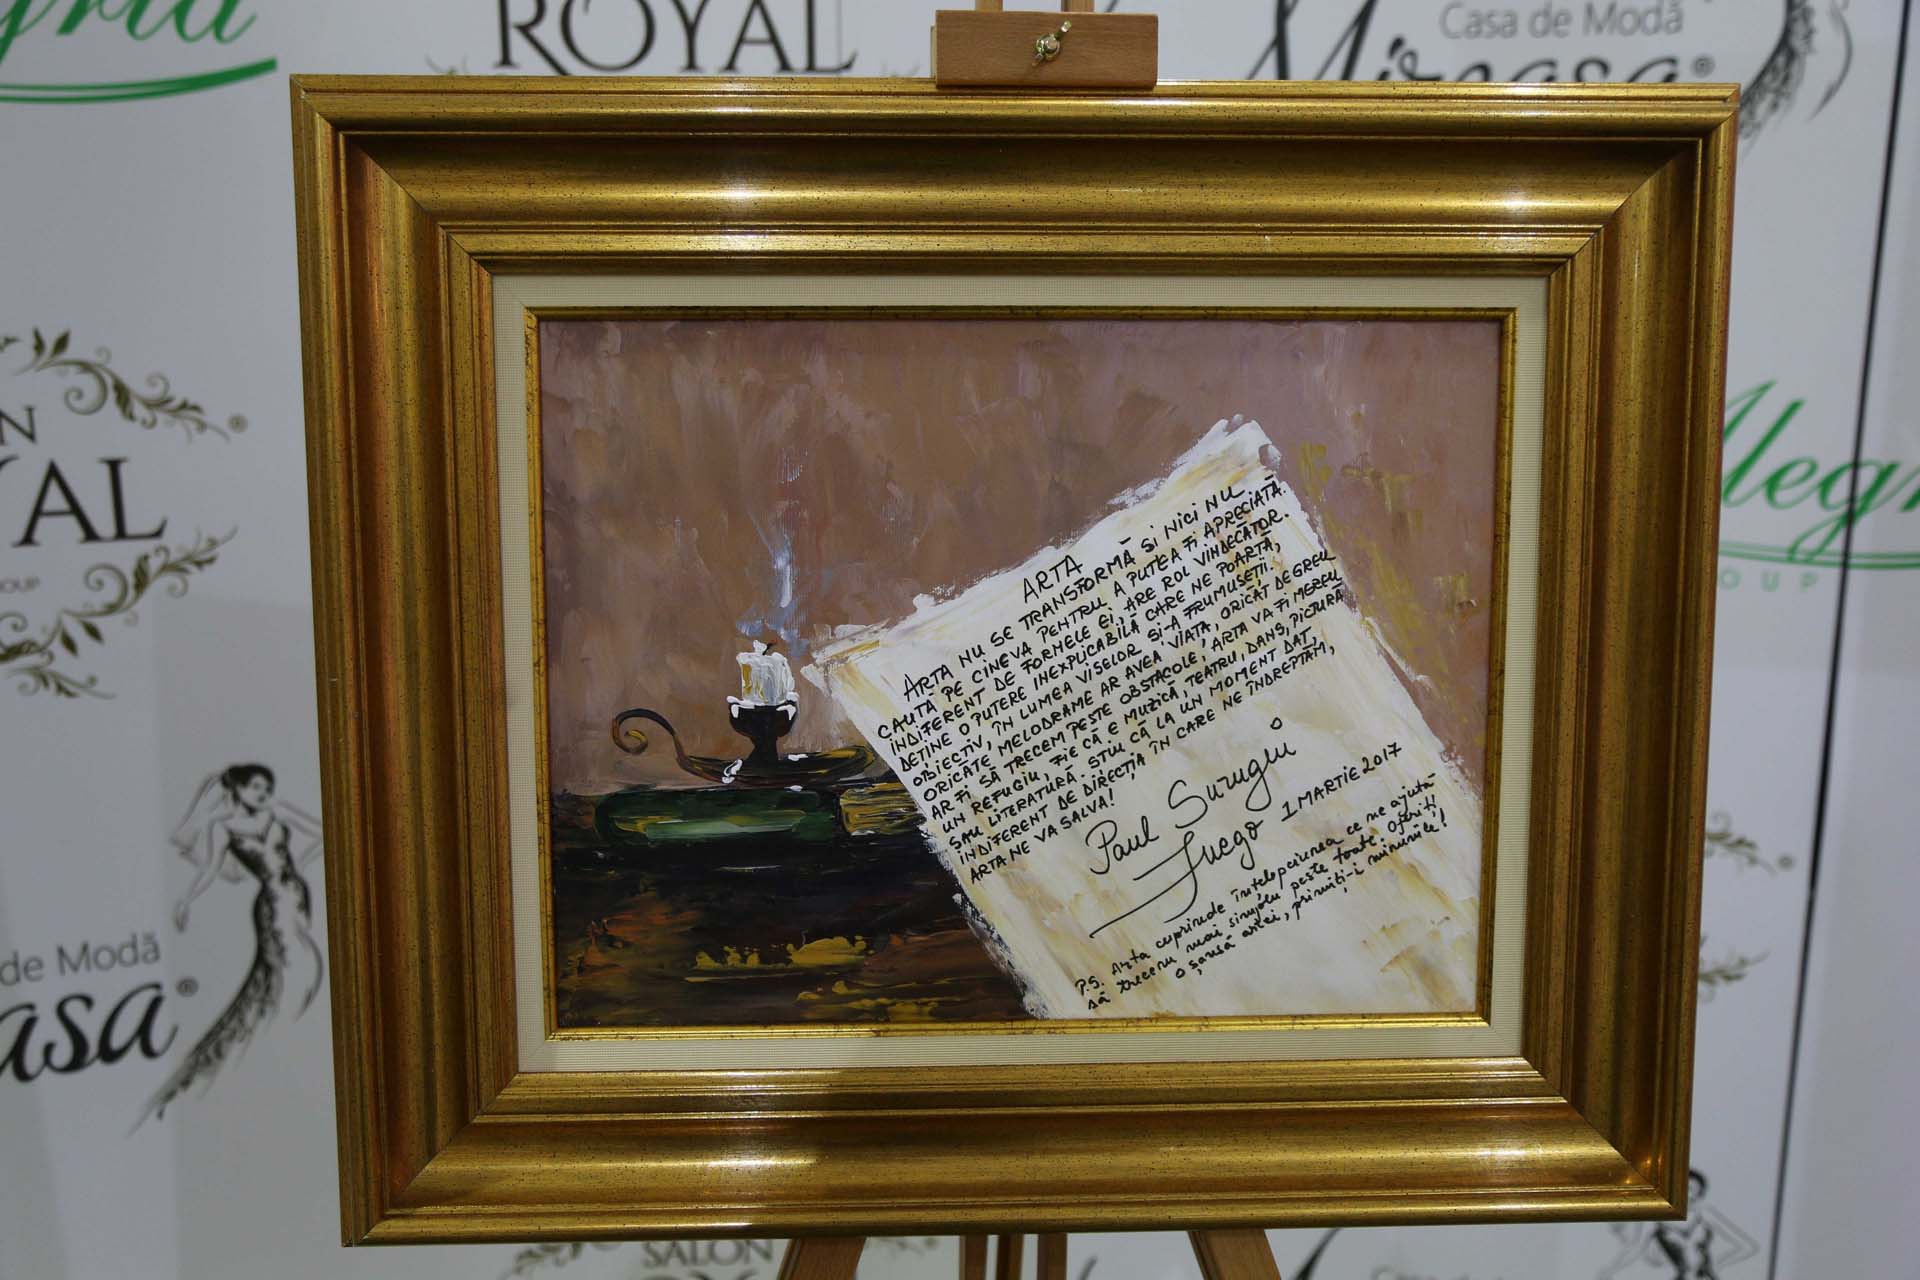 ROYAL
Casa de Modă
Mireasa®
ARTA
ARTA NU SE TRANSFORMĂ SI NICI NU
CAUTĂ PE CINEVA PENTRU A PUTEA FI APRECIATĂ.
INDIFERENT DE FORMELE EI, ARE ROL VINDECĂTOR.
DEȚINE O PUTERE INEXPLICABILĂ CARE NE POARTĂ,
OBIECTIV, ÎN LUMEA VISELOR SI-A FRUMUSEȚII.
ORICÂTE MELODRAME AR AVEA VIAȚA, ORICÂT DE GREU
AR FI SĂ TRECEM PESTE OBSTACOLE, ARTA VA FI MEREU
UN REFUGIU, FIE CĂ E MUZICĂ, TEATRU, DANS, PICTURĂ
SAU LITERATURĂ. STIU CĂ LA UN MOMENT DAT,
INDIFERENT DE DIRECȚIA ÎN CARE NE ÎNDREPTĂM,
ARTA NE VA SALVA!
Paul Surugiu
Fuego 1 MARTIE 2017
P.S. Arta cuprinde înțelepciunea ce ne ajută
să trecem mai simplu peste toate. Oferiți
o șansă artei, primiți-i minunile!
YAL
Alegr
OUP
de Modă
asa®
SALON